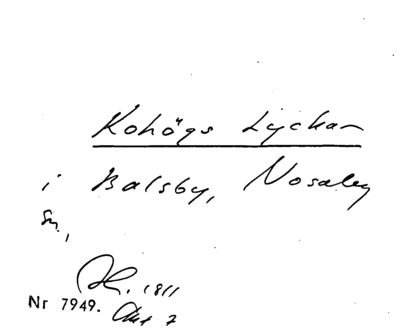 Kohögs Lyckan
i Balsby, Nosaby
Sn,
1811
Nr 7949. Akt 7